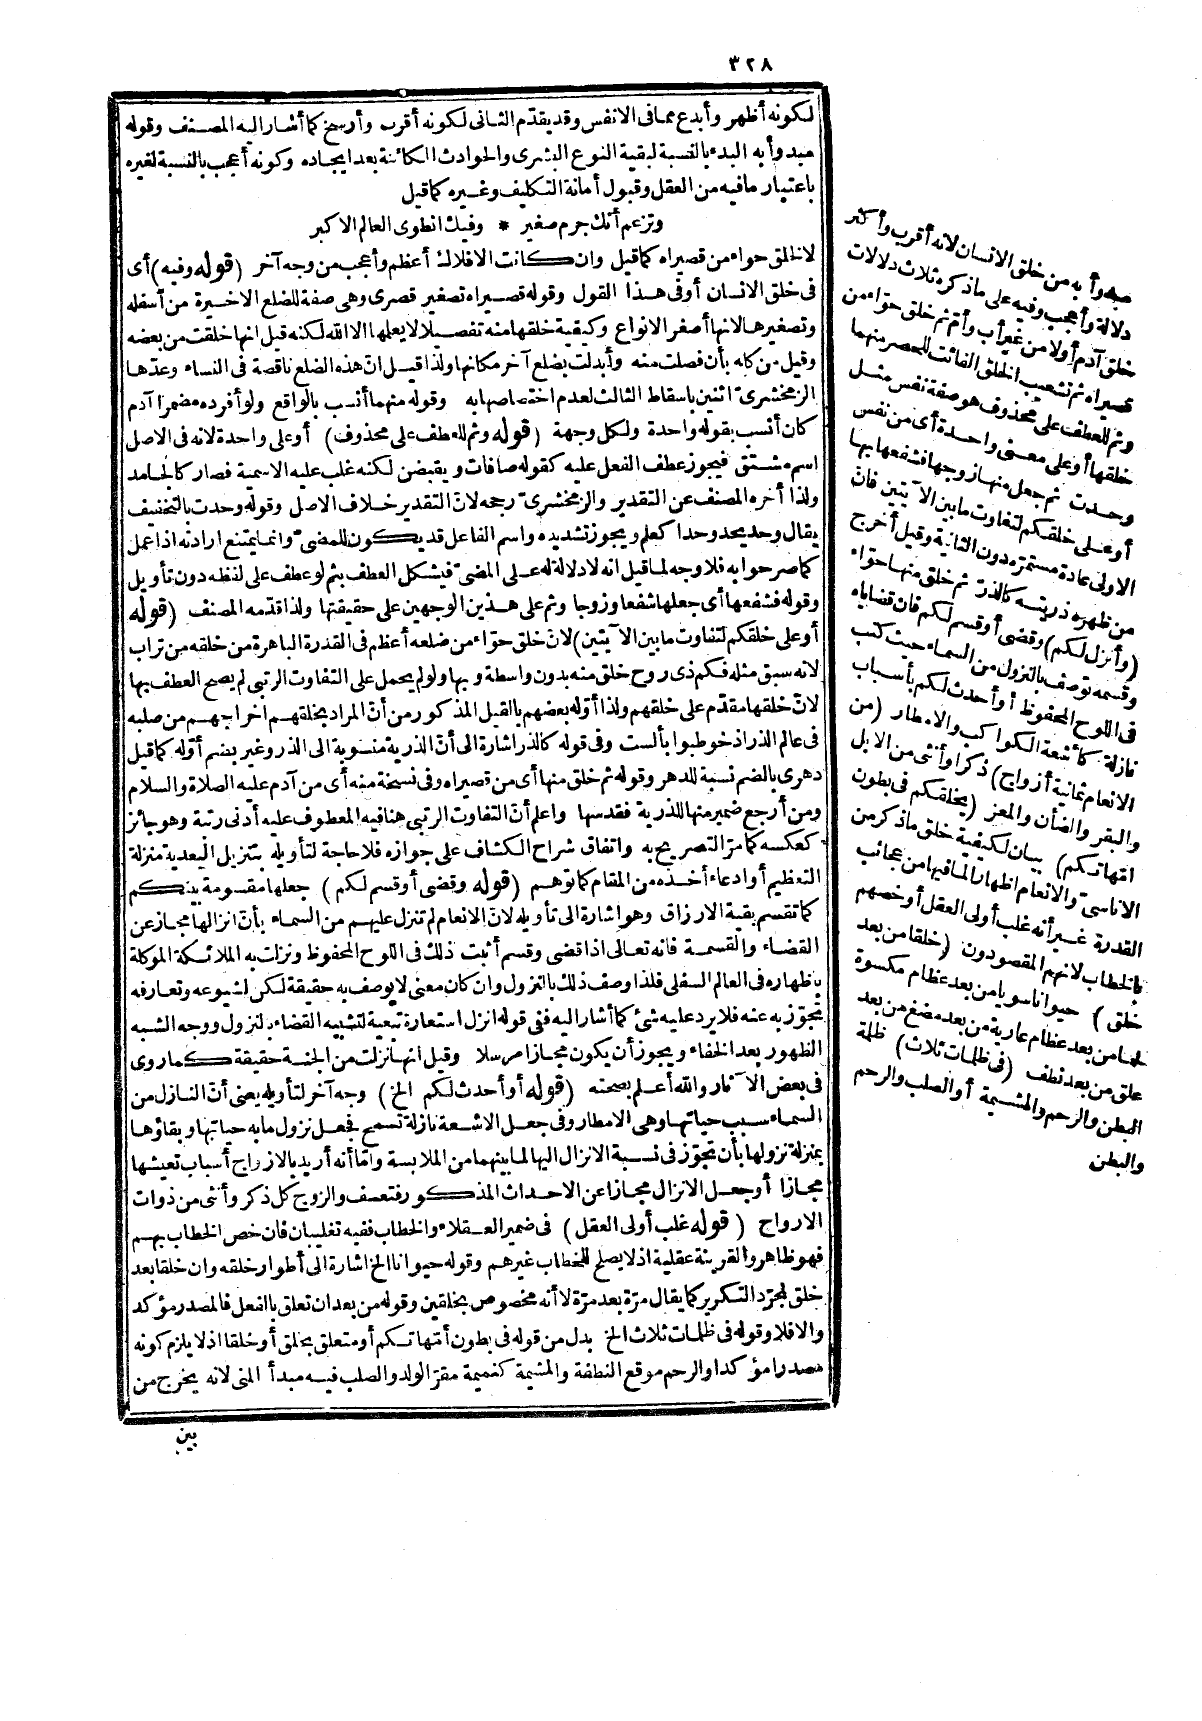 ٣٢٨
لكونه أظهر وأبدع مما فى الانفس وقد يقدّم الثانى لكونه أقرب وأرسخ كما أشار اليه المصنف وقوله
مبدوأ به البدء بالنسبة لبقية النوع البشرى والحوادث الكائنة بعد ايجاده وكونه أعجب بالنسبة لغيره
باعتبار ما فيه من العقل وقبول أمانة التكليف وغيره كما قيل
وتزعم أنك جرم صغير * وفيك انطوى العالم الاكبر
لا خلق حواء من قصيراه كما قيل وان كانت الافلاك أعظم وأعجب من وجه آخر (قوله وفيه) أى
فى خلق الانسان أو فى هذا القول وقوله قصيراه تصغير قصرى وهى صفة للضلع الاخيرة من أسفله
وتصغيرها لانها أصغر الانواع وكيفية خلقها منه تفصيلا لا يعلمها الا الله لكنه قيل انها خلقت من بعضه
وقيل من كله بأن فصلت منه وأبدلت بضلع آخر مكانها ولذا قيل انّ هذه الضلع ناقصة فى النساء وعدّها
الزمخشرىّ اثنين باسقاط الثالث لعدم اختصاصها به وقوله منهما أنسب بالواقع ولو أفرده مضمرا آدم
كان أنسب بقوله واحدة ولكل وجهة (قوله وثم للعطف على محذوف) أو على واحدة لانه فى الاصل
اسم مشتق فيجوز عطف الفعل عليه كقوله صافات ويقبضن لكنه غلب عليه الاسمية فصار كالجامد
ولذا أخره المصنف عن التقدير والزمخشرىّ رجحه لانّ التقدير خلاف الاصل وقوله وحدت بالتخفيف
يقال وحد يحد وحدا كعلم ويجوز تشديده واسم الفاعل قد يكون للمضىّ وانما يمتنع ارادته اذا عمل
كما صرحوا به فلا وجه لما قيل انه لا دلالة له على المضىّ فيشكل العطف بثم لو عطف على لفظه دون تأويل
وقوله فشفعها أى جعلها شفعا وزوجا وثم على هذين الوجهين على حقيقتها ولذا قدّمه المصنف (قوله
أو على خلقكم لتفاوت ما بين الآيتين) لانّ خلق حوّاء من ضلعه أعظم فى القدرة الباهرة من خلقه من تراب
لانه سبق مثله فكم ذى روح خلق منه بدون واسطة وبها ولو لم يحمل على التفاوت الرتبى لم يصح العطف بها
لانّ خلقها مقدّم على خلقهم ولذا أوله بعضهم بالقيل المذكور من أنّ المراد بخلقهم اخراجهم من صلبه
فى عالم الذر اذ خوطبوا بألست وفى قوله كالذر اشارة الى أنّ الذرية منسوبة الى الذر وغير بضم أوّله كما قيل
دهرى بالضم نسبة للدهر وقوله ثم خلق منها أى من قصيراه وفى نسخة منه أى من آدم عليه الصلاة والسلام
ومن أرجع ضمير منها للذرية فقد سها واعلم أنّ التفاوت الرتبى هنا فيه المعطوف عليه أدنى رتبة وهو جائز
كعكسه كما مرّ التصريح به واتفاق شراح الكشاف على جوازه فلا حاجة لتأويله بتنزيل البعدية منزلة
التعظيم أو ادعاء أخذه من المقام كما توهم (قوله وقضى أو قسم لكم) جعلها مقسومة بينكم
كما تقسم بقية الارزاق وهو اشارة الى تأويله لانّ الانعام لم تنزل عليهم من السماء بأنّ انزالها مجاز عن
القضاء والقسمة فانه تعالى اذا قضى وقسم أثبت ذلك فى اللوح المحفوظ ونزلت به الملائكة الموكلة
باظهاره فى العالم السفلى فلذا وصف ذلك بالنزول وان كان معنى لا يوصف به حقيقة لكن لشيوعه وتعارفه
تجوّز به عنه فلا يرد عليه شئ كما أشار اليه ففى قوله انزل استعارة تبعية لتشبيه القضاء بالنزول ووجه الشبه
الظهور بعد الخفاء ويجوز أن يكون مجازا مرسلا وقيل انها نزلت من الجنة حقيقة كما روى
فى بعض الآثار والله أعلم بصحته (قوله أو أحدث لكم الخ) وجه آخر لتأويله يعنى أنّ النازل من
السماء سبب حياتها وهى الامطار وفى جعل الاشعة نازلة تسمح فجعل نزول ما به حياتها وبقاؤها
بمنزلة نزولها بأن تجوّز فى نسبة الانزال اليها لما بينهما من الملابسة وامّا أنه أريد بالازواج أسباب تعيشها
مجازا أو جعل الانزال مجازا عن الاحداث المذكور فتعسف والزوج كل ذكر وأنثى من ذوات
الارواح (قوله غلب أولى العقل) فى ضمير العقلاء والخطاب ففيه تغليبان فان خص الخطاب بهم
فهو ظاهر والقرينة عقلية اذ لا يصلح للخطاب غيرهم وقوله حيوانا الخ اشارة الى أطوار خلقه وان خلقا بعد
خلق لمجرّد التكرير كما يقال مرّة بعد مرّة لا أنه مخصوص بخلقين وقوله من بعد ان تعلق بالفعل فالمصدر مؤكد
والا فلا وقوله فى ظلمات ثلاث الخ بدل من قوله فى بطون أمّهاتكم أو متعلق بخلق أو خلقا اذ لا يلزم كونه
مصدرا مؤكدا والرحم موقع النطفة والمشيمة كغنيمة مقرّ الولد والصلب فيه مبدأ المنى لانه يخرج من
بين
مبدوأ به من خلق الانسان لانه أقرب وأكثر
دلالة وأعجب وفيه على ما ذكره ثلاث دلالات
خلق آدم أولا من غير أب وأم ثم خلق حوّاء من
قصيراه ثم تشعيب الخلق الفائت للحصر منهما
وثم للعطف على محذوف هو صفة نفس مثل
خلقها أو على معنى واحدة أى من نفس
وحدت ثم جعل منها زوجها فشفعها بها
أو على خلقكم لتفاوت ما بين الآيتين فانّ
الاولى عادة مستمرّة دون الثانية وقيل أخرج
من ظهره ذريته كالذرّ ثم خلق منها حوّاء
(وأنزل لكم) وقضى أو قسم لكم فان قضاياه
وقسمه توصف بالنزول من السماء حيث كتب
فى اللوح المحفوظ أو أحدث لكم بأسباب
نازلة كأشعة الكواكب والامطار (من
الانعام ثمانية أزواج) ذكرا وأنثى من الابل
والبقر والضأن والمعز (يخلقكم فى بطون
امّهاتكم) بيان لكيفية خلق ما ذكر من
الاناسىّ والانعام اظهارا لما فيها من عجائب
القدرة غير أنه غلب أولى العقل أو خصهم
بالخطاب لانهم المقصودون (خلقا من بعد
خلق) حيوانا سويا من بعد عظام مكسوة
لحما من بعد عظام عارية من بعد مضغ من بعد
علق من بعد نطف (فى ظلمات ثلاث) ظلمة
البطن والرحم والمشيمة أو الصلب والرحم
والبطن